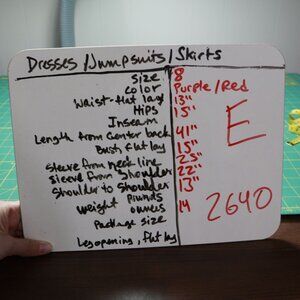 Dresses/Jumpsuits/Skirts
Size 8
Color Purple/Red
Waist-flat lay 13"
Hips 15"
Inseam
Length from Center back 41"
Bust flat lay 15"
Sleeve from neck line 25"
Sleeve from Shoulder 22"
Shoulder to Shoulder 13"
Weight Pounds
ounces 14
Package size
Leg opening, flat lay
E
2640